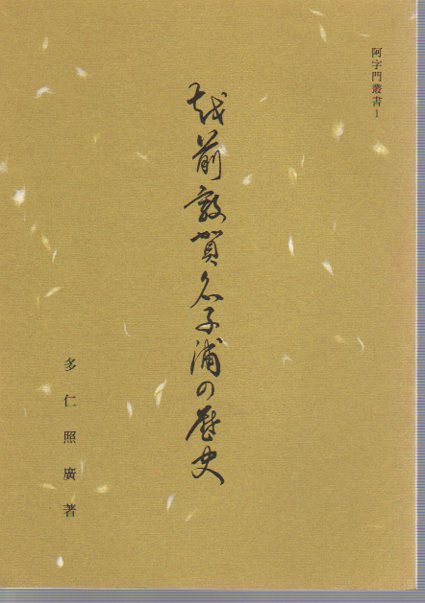 阿字門叢書1
越前敦賀名子浦の歴史
多仁照廣著